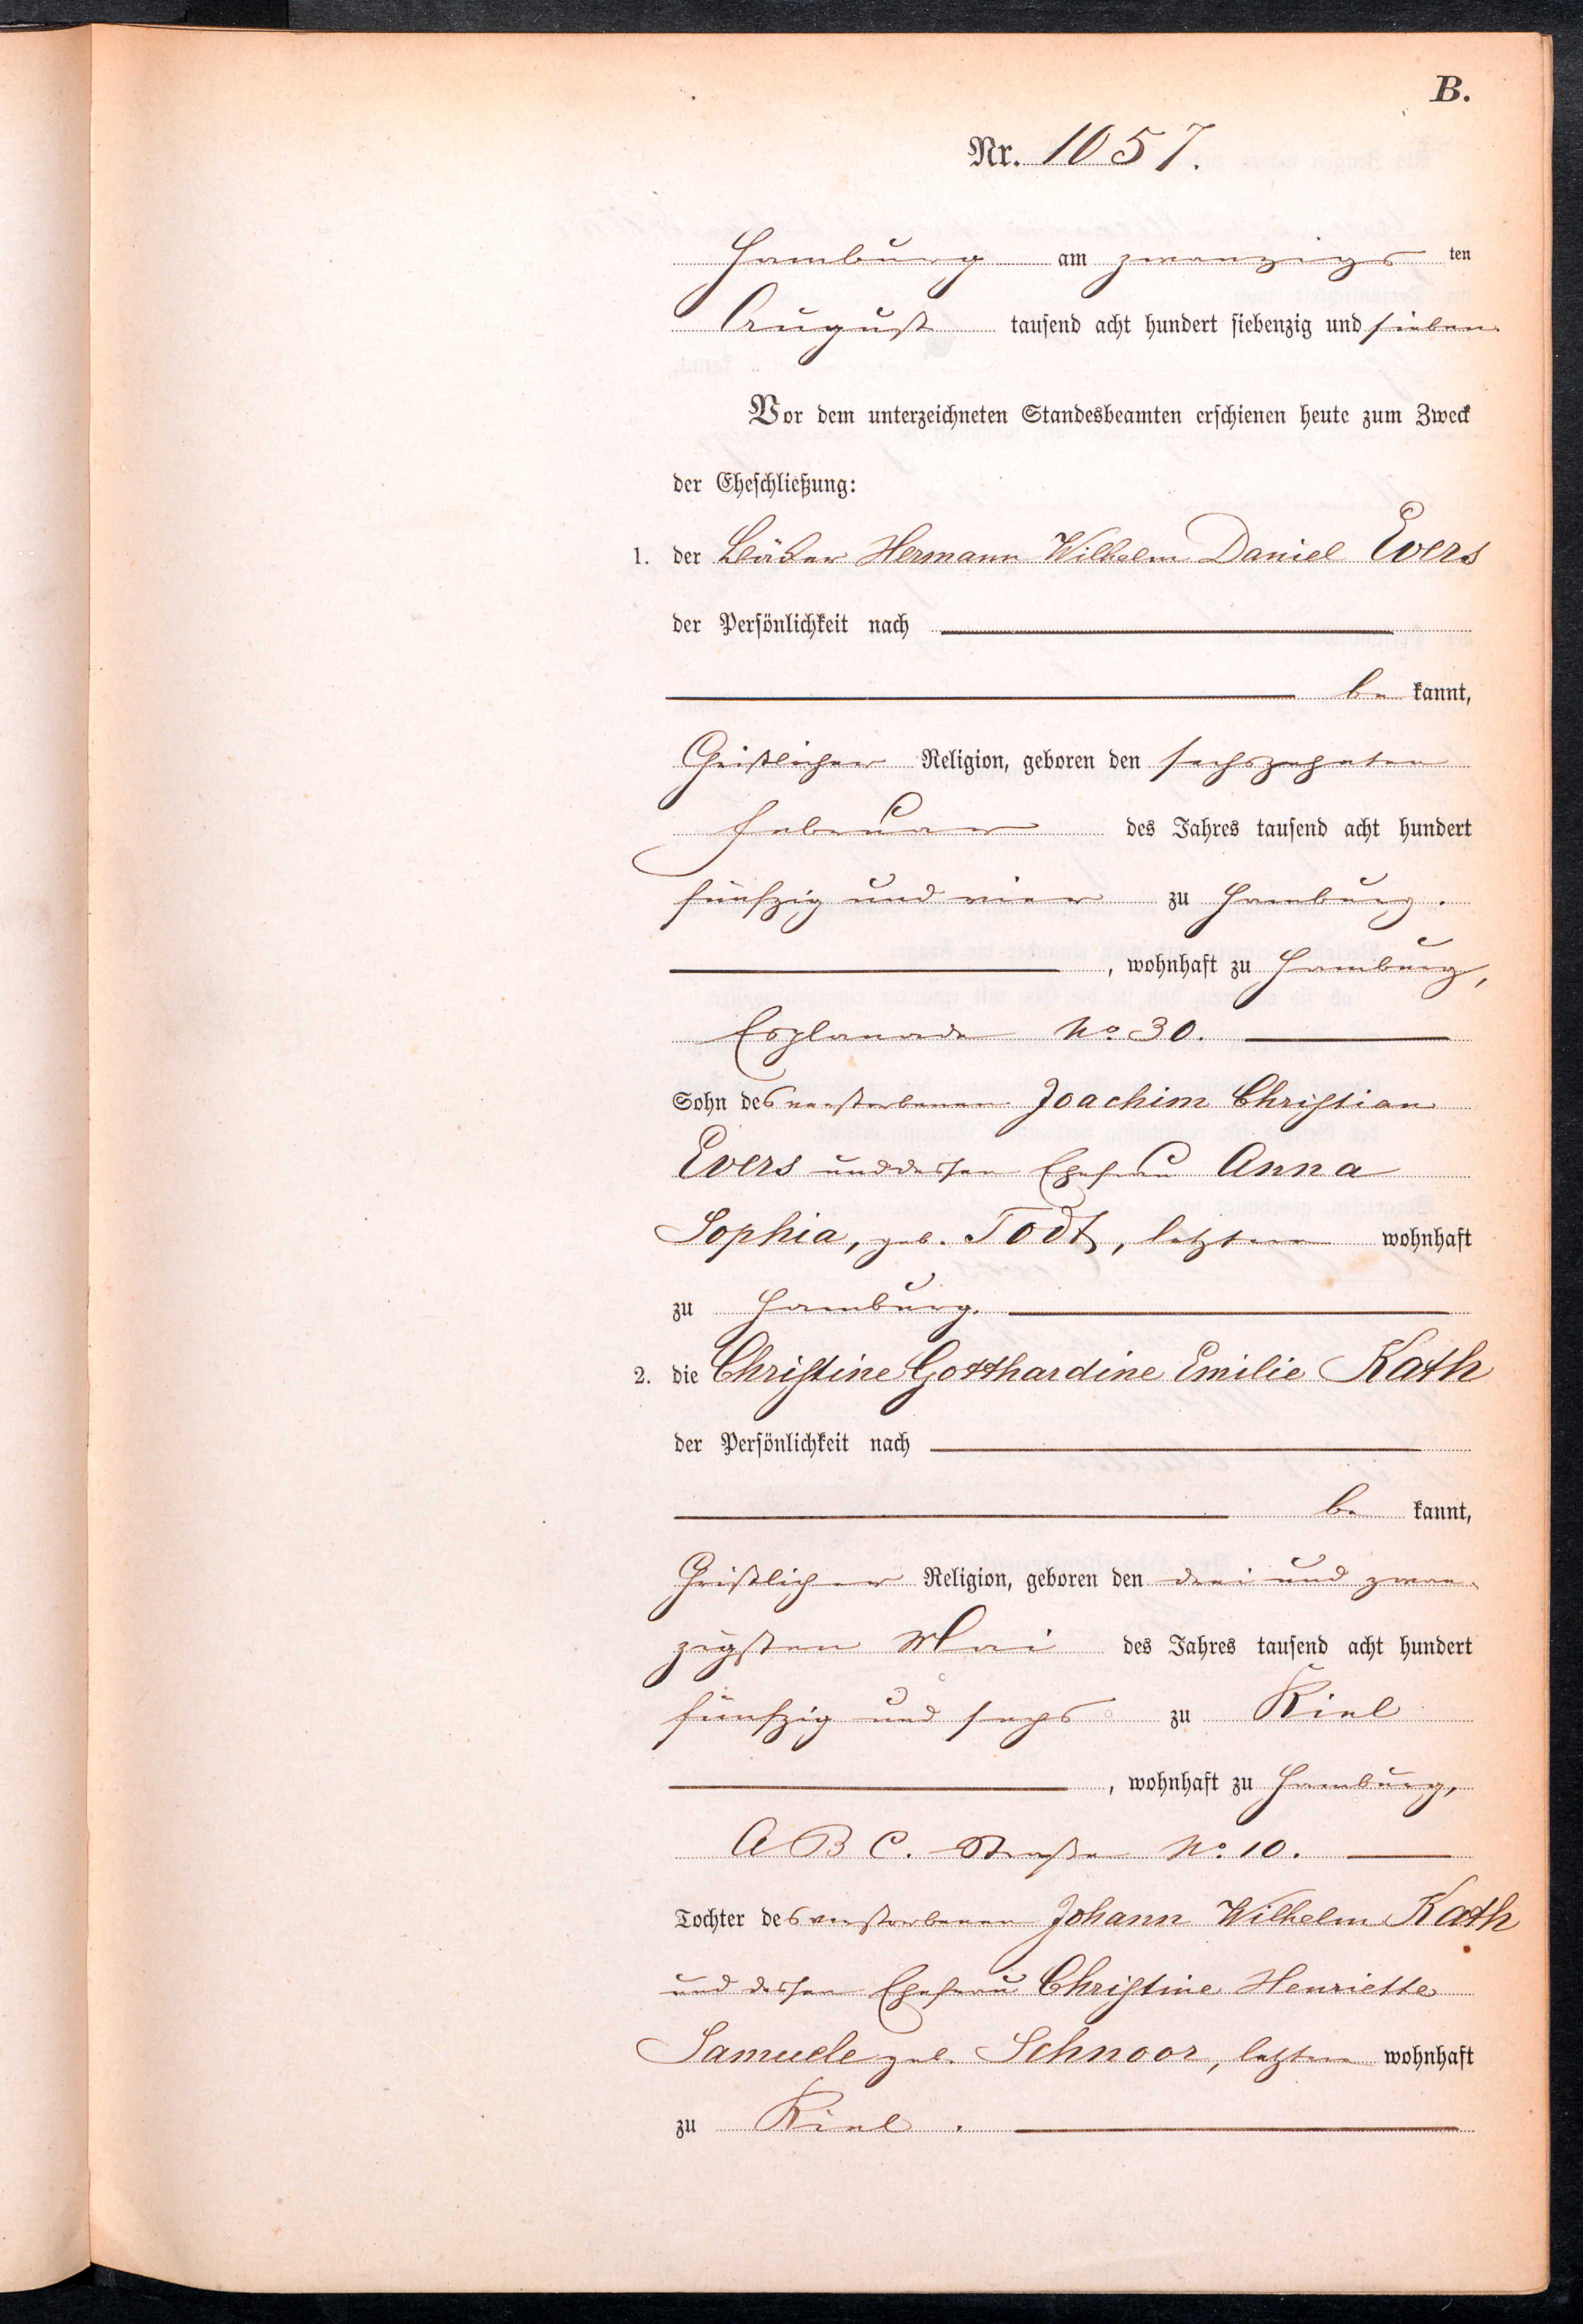 B.
Nr. 1057.
Hamburg am zwanzigs ten
August tausend acht hundert siebenzig und sieben
Vor dem unterzeichneten Standesbeamten erschienen heute zum Zweck
der Eheschließung:
1. der Bäcker Hermann Wilhelm Daniel Evers
der Persönlichkeit nach
be kannt,
Christlicher Religion, geboren den sechszehnten
Februar des Jahres tausend acht hundert
fünfzig und vier zu Hamburg.
, wohnhaft zu Hamburg,
Esplanade No 30.
Sohn des verstorbenen Joachim Christian
Evers und dessen Ehefrau Anna
Sophia, geb. Todt, letztere wohnhaft
zu Hamburg.
2. die Christine Gotthardine Emilie Kath
der Persönlichkeit nach
be kannt,
Christlicher Religion, geboren den drei und zwan-
zigsten Mai des Jahres tausend acht hundert
fünfzig und sechs zu Kiel
, wohnhaft zu Hamburg,
A B C. Straße No. 10.
Tochter des verstorbenen Johann Wilhelm Kath
und dessen Ehefrau Christine Henriette
Samuele geb. Schnoor, letztere wohnhaft
zu Kiel.